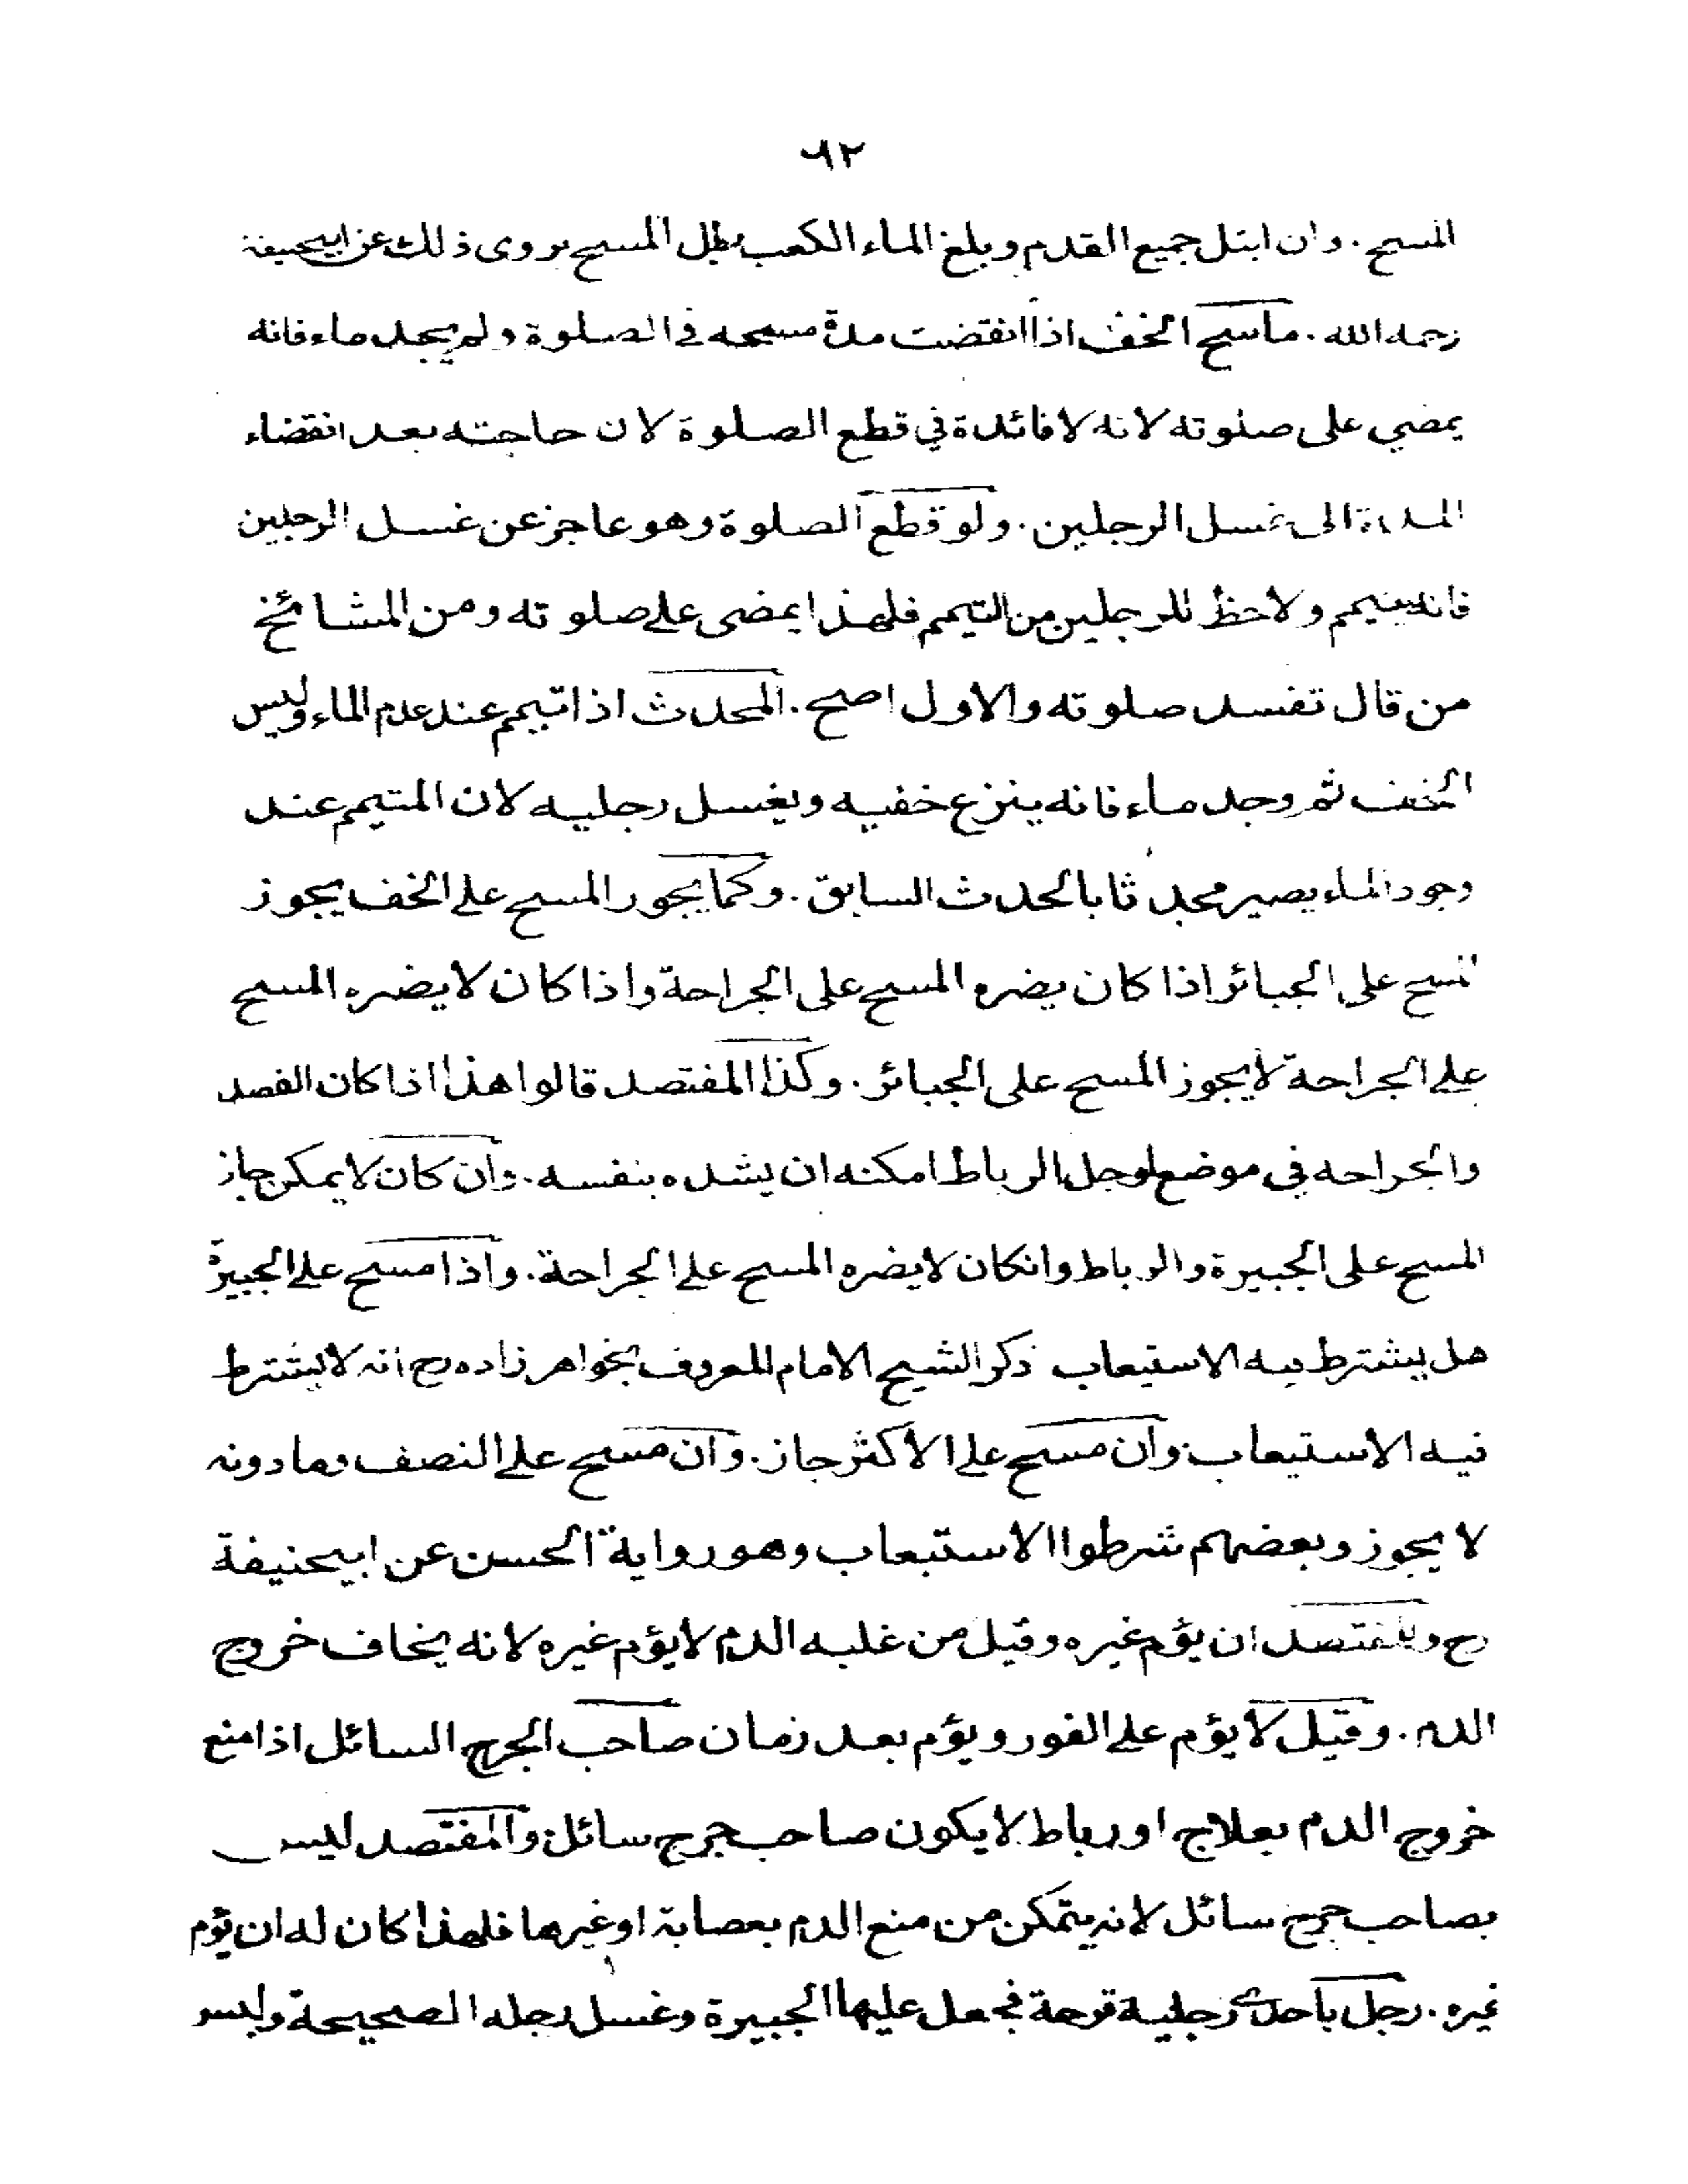 ٦٢
المسح. وان ابتل جميع القدم وبلغ الماء الكعب بطل المسح يروى ذلك عن ابيحنيفة
رحمه الله. ماسح الخف اذا انقضت مدة مسحه في الصلوة ولم يجد ماء فانه
يمضي على صلوته لانه لا فائدة في قطع الصلوة لان حاجته بعد انقضاء
المدة الى غسل الرجلين. ولو قطع الصلوة وهو عاجز عن غسل الرجلين
فانه يتيمم ولاحظ للرجلين من التيمم فلهذا يمضى على صلوته ومن المشائخ
من قال تفسد صلوته والاول اصح. المحدث اذا تيمم عند عدم الماء ولبس
الخف ثم وجد ماء فانه ينزع خفيه ويغسل رجليه لان المتيمم عند
وجود الماء يصير محدثا بالحدث السابق. وكما يجوز المسح على الخف يجوز
المسح على الجبائر اذا كان يضره المسح على الجراحة واذا كان لا يضره المسح
على الجراحة لا يجوز المسح على الجبائر. وكذا المفتصد قالوا هذا اذا كان الفصد
والجراحه في موضع لوحل الرباط امكنه ان يشده بنفسه. وان كان لا يمكن جاز
المسح على الجبيرة والرباط وانكان لا يضره المسح على الجراحة. واذا مسح على الجبيرة
هل يشترط فيه الاستيعاب ذكر الشيخ الامام المعروف بخواهر زاده رح انه لا يشترط
فيه الاستيعاب وان مسح على الاكثر جاز. وان مسح على النصف فما دونه
لا يجوز وبعضهم شرطوا الاستيعاب وهو رواية الحسن عن ابيحنيفة
رح وللمفتصد ان يؤم غيره وقيل من غلبه الدم لا يؤم غيره لانه يخاف خروج
الدم. وقيل لا يؤم على الفور ويؤم بعد زمان صاحب الجرح السائل اذا منع
خروج الدم بعلاج او رباط لا يكون صاحب جرح سائل والمفتصد ليس
بصاحب جرح سائل لانه يتمكن من منع الدم بعصابة او غيرها فلهذا كان له ان يؤم
غيره. رجل باحدى رجليه قرحة فجعل عليها الجبيرة وغسل رجله الصحيحة ولبس